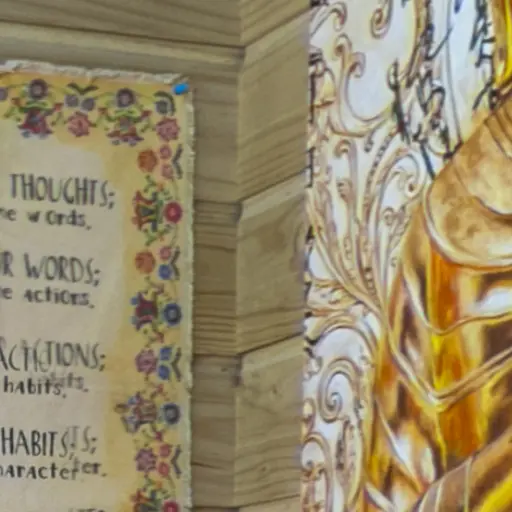 THOUGHTS;
words.
WORDS;
actions.
ACTIONS;
habits.
HABITS;